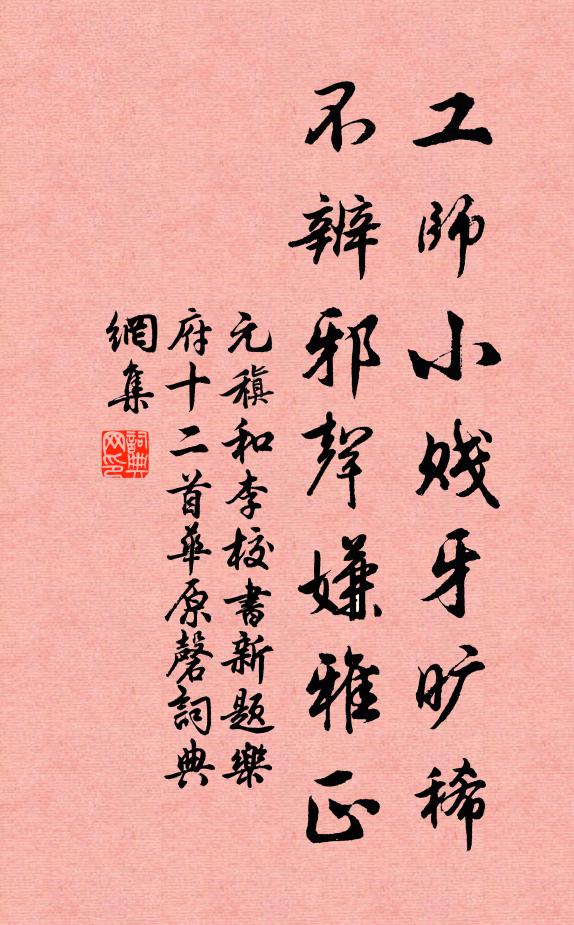 工師小賤牙曠稀
不辨邪聲嫌雅正
元稹和李校書新題樂
府十二首華原磬詞典
網集
詞典
网印